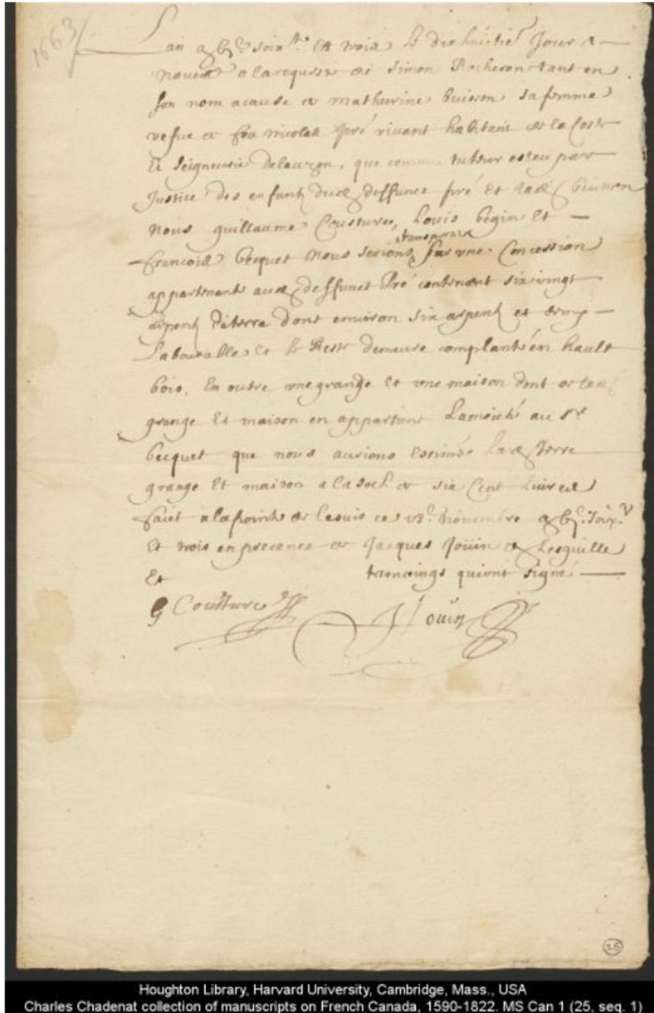 1663
Lan g bjc soixte et trois le dix huictie jour de
novembre a la requeste de Simon Rocheron tant en
son nom a cause de mathurine buisson sa femme
vefve de feu nicolas pré vivant habitant de la Coste
et Seigneurie Delauzon, que comme tuteur esleu par
Justice des enfants dud deffunct pré et lad buisson
nous guillaume Cousture, Louis begin et
francois becquet nous serions transportez sur une Concession
appartenant aud deffunct Pré contenant six vingt
arpent de terre dont environ six arpent et demy
Labourable et le Reste demeure complanté en hault
bois, En outre une grange et une maison dont de lad
grange et maison en appartient Lamoitié au sr
becquet que nous aurions estimée lad terre
grange et maison a la so de six Cent livres
faict a la pointe de levis ce novembre g bjc soixte
et trois en presence de Jacques Jouin de Lesguille
Et qui ont signé
G Coutture Jouin
25
Houghton Library, Harvard University, Cambridge, Mass., USA
Charles Chadenat collection of manuscripts on French Canada, 1590-1822. MS Can 1 (25, seq. 1)